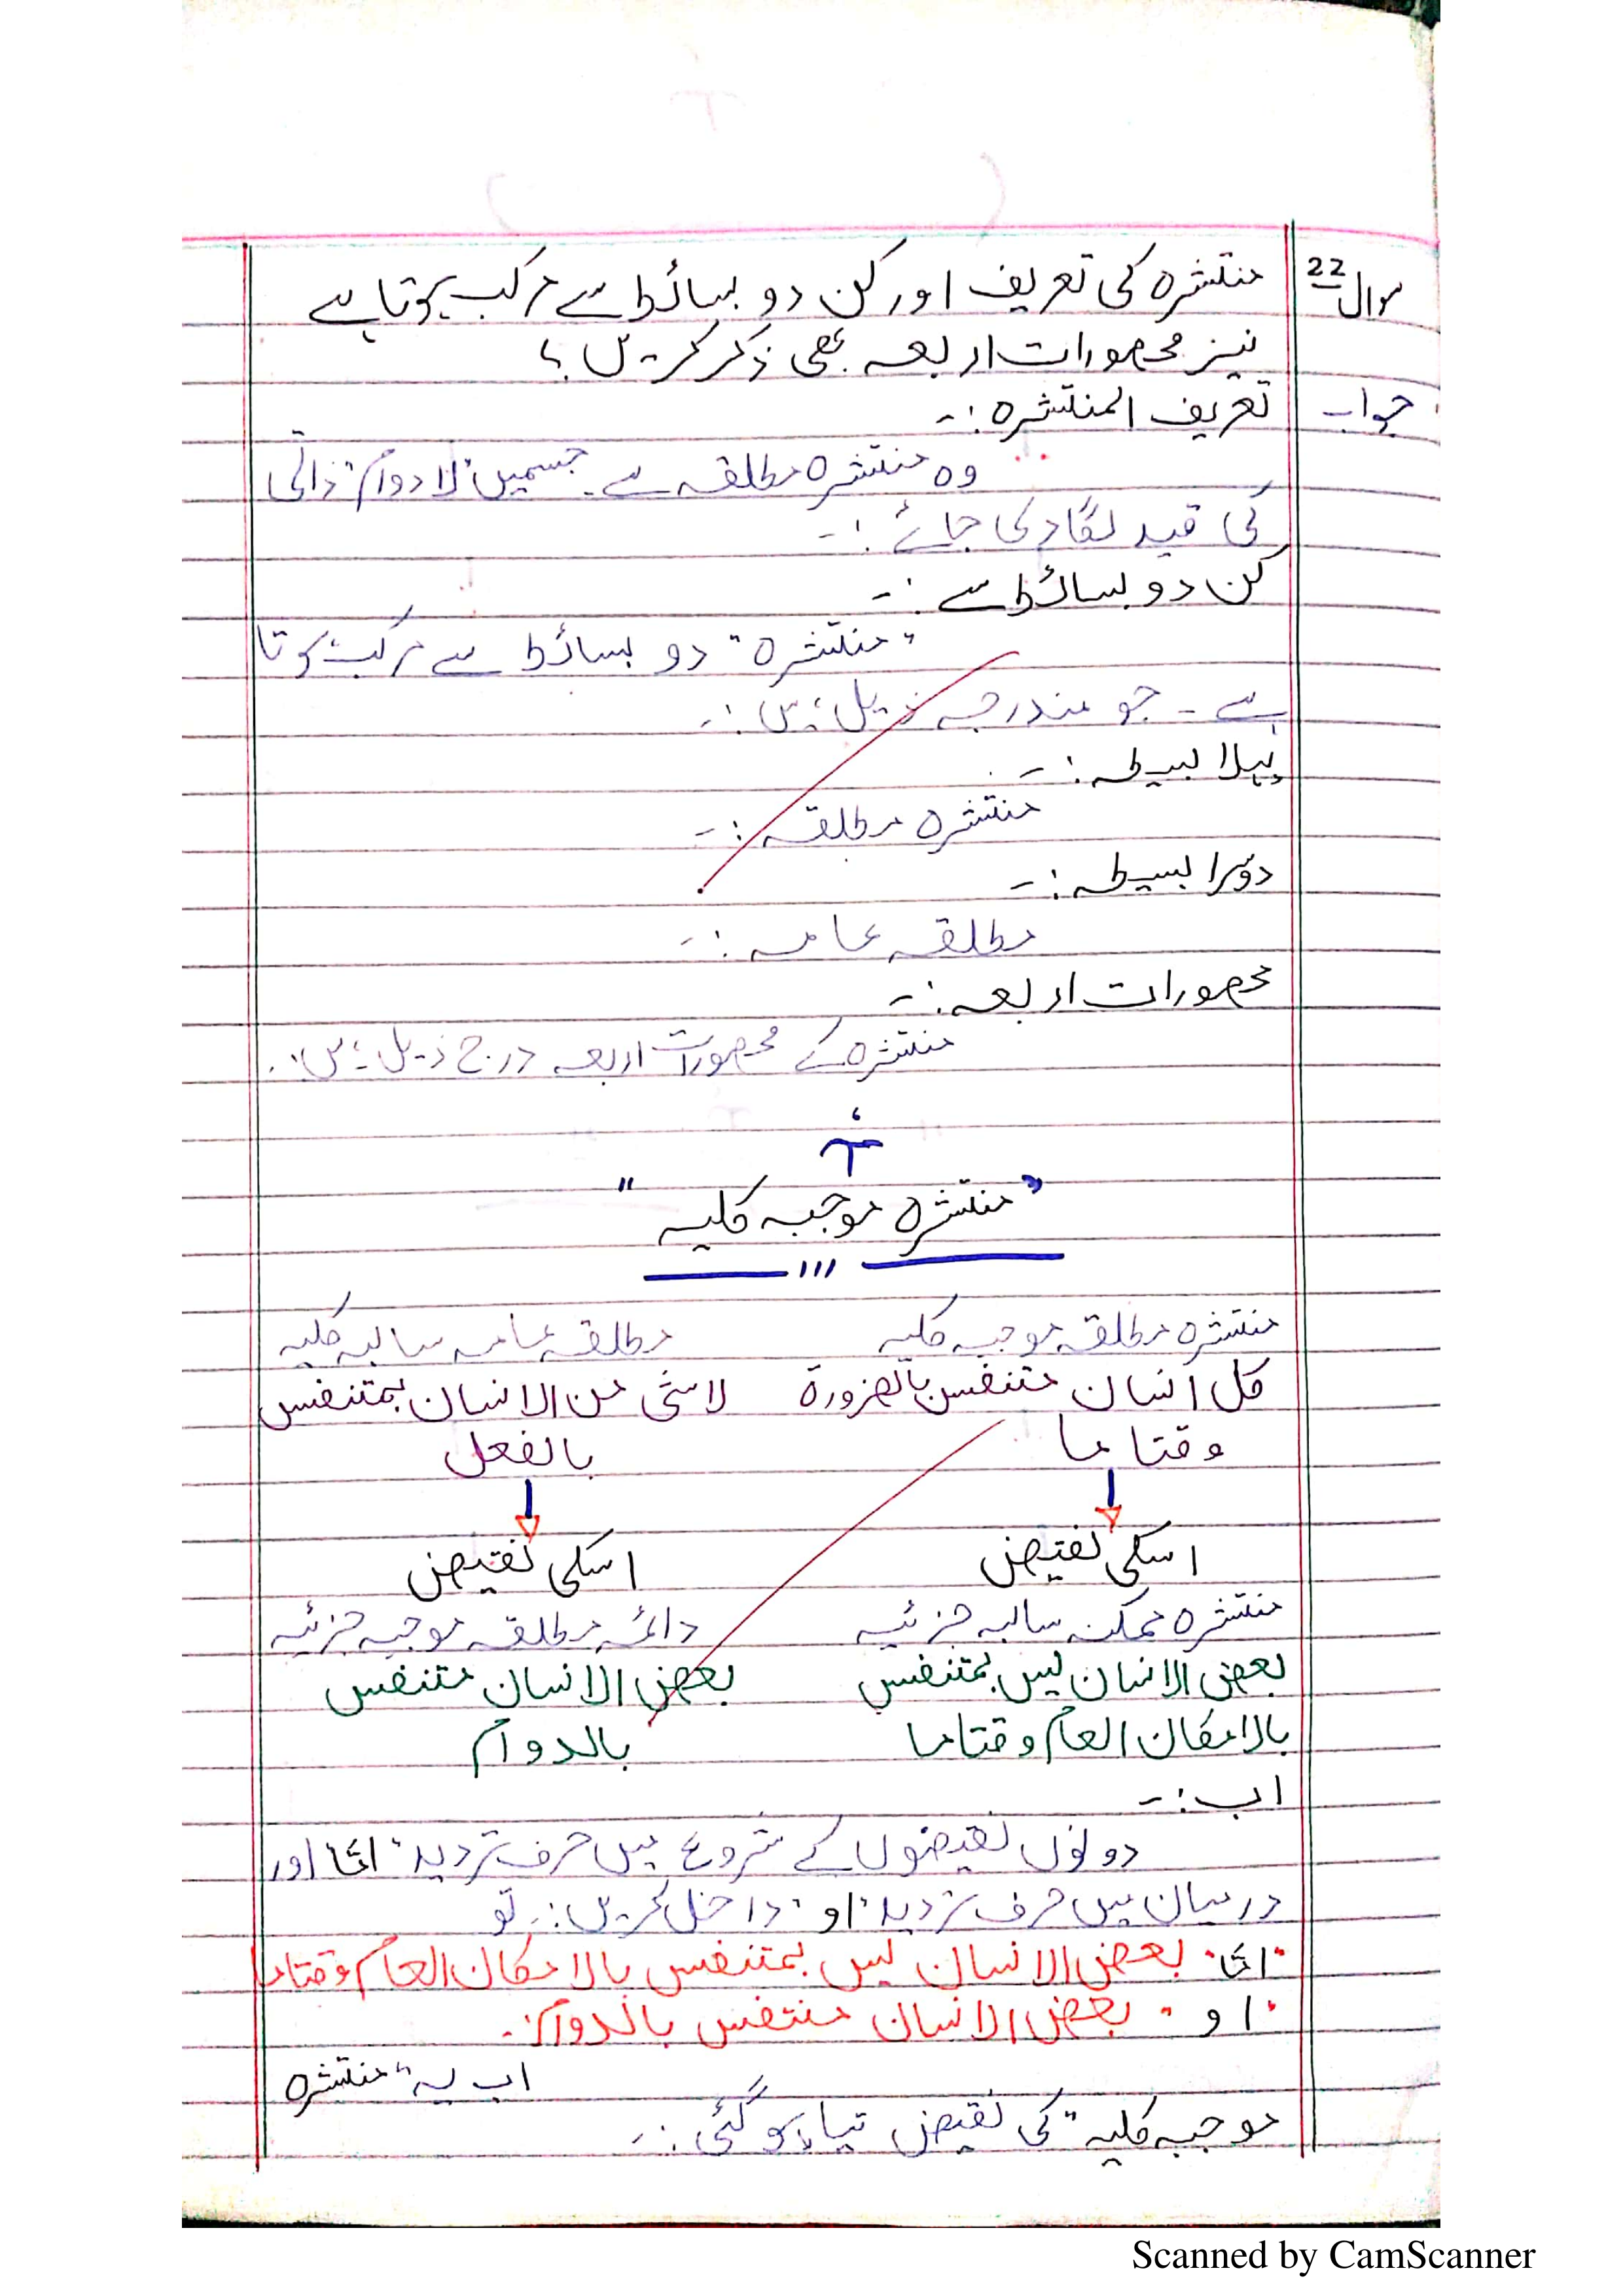 سوال 22 منتشرہ کی تعریف اور کن دو بسائط سے مرکب ہوتا ہے
نیز محصورات اربعہ بھی ذکر کریں؟
جواب تعریف المنتشرہ :-
وہ منتشرہ مطلقہ ہے۔ جسمیں "لا دوام" ذاتی
کی قید لگادی جائے :-
کن دو بسائط سے :-
"منتشرہ" دو بسائط سے مرکب ہوتا
ہے - جو مندرجہ ذیل ہیں :-
پہلا بسیطہ :-
منتشرہ مطلقہ :-
دوسرا بسیطہ :-
مطلقہ عامہ :-
محصورات اربعہ :-
منتشرہ کے محصورات اربعہ درج ذیل ہیں :.
"منتشرہ موجبہ کلیہ"
منتشرہ مطلقہ موجبہ کلیہ مطلقہ عامہ سالبہ کلیہ
کل انسان متنفس بالضرورۃ لا شئی من الانسان بمتنفس
وقتا ما بالفعل
اسکی نقیض اسکی نقیض
منتشرہ ممکنہ سالبہ جزئیہ دائمہ مطلقہ موجبہ جزئیہ
بعض الانسان لیس بمتنفس بعض الانسان متنفس
بالامکان العام وقتا ما بالدوام
اب :-
دونوں نقیضوں کے شروع میں حرف تردید "امّا" اور
درمیان میں حرف تردید "او" داخل کریں :- تو
"امّا" بعض الانسان لیس بمتنفس بالامکان العام وقتا ما
"او" بعض الانسان منتفس بالدوام :-
اب یہ "منتشرہ
موجبہ کلیہ" کی نقیض تیار ہو گئی :-
Scanned by CamScanner